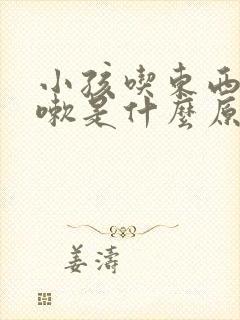 小孩喫東西
嗽是什麼原
姜濤